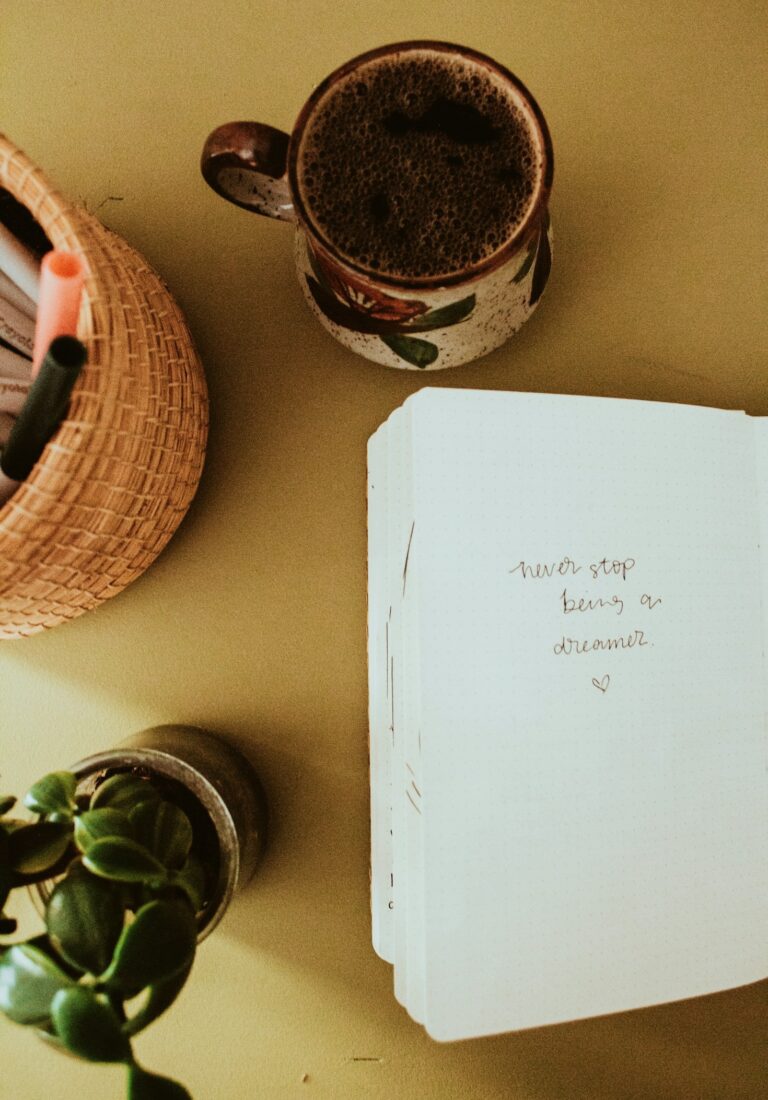 Crayola
never stop
being a
dreamer.
♡